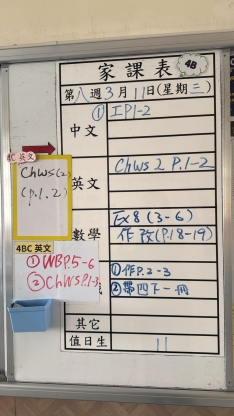 家課表
4B
第八週3月11日(星期三)
中文
① 工P1-2
英文
Chws 2 P.1-2
數學
作改(P.18-19)
①作P.2-3
②第四下一冊
其它
值日生
11
4C 英文
Chws(2
(p.1.2)
4BC 英文
①WBP.5-6
②ChWSP.1-3